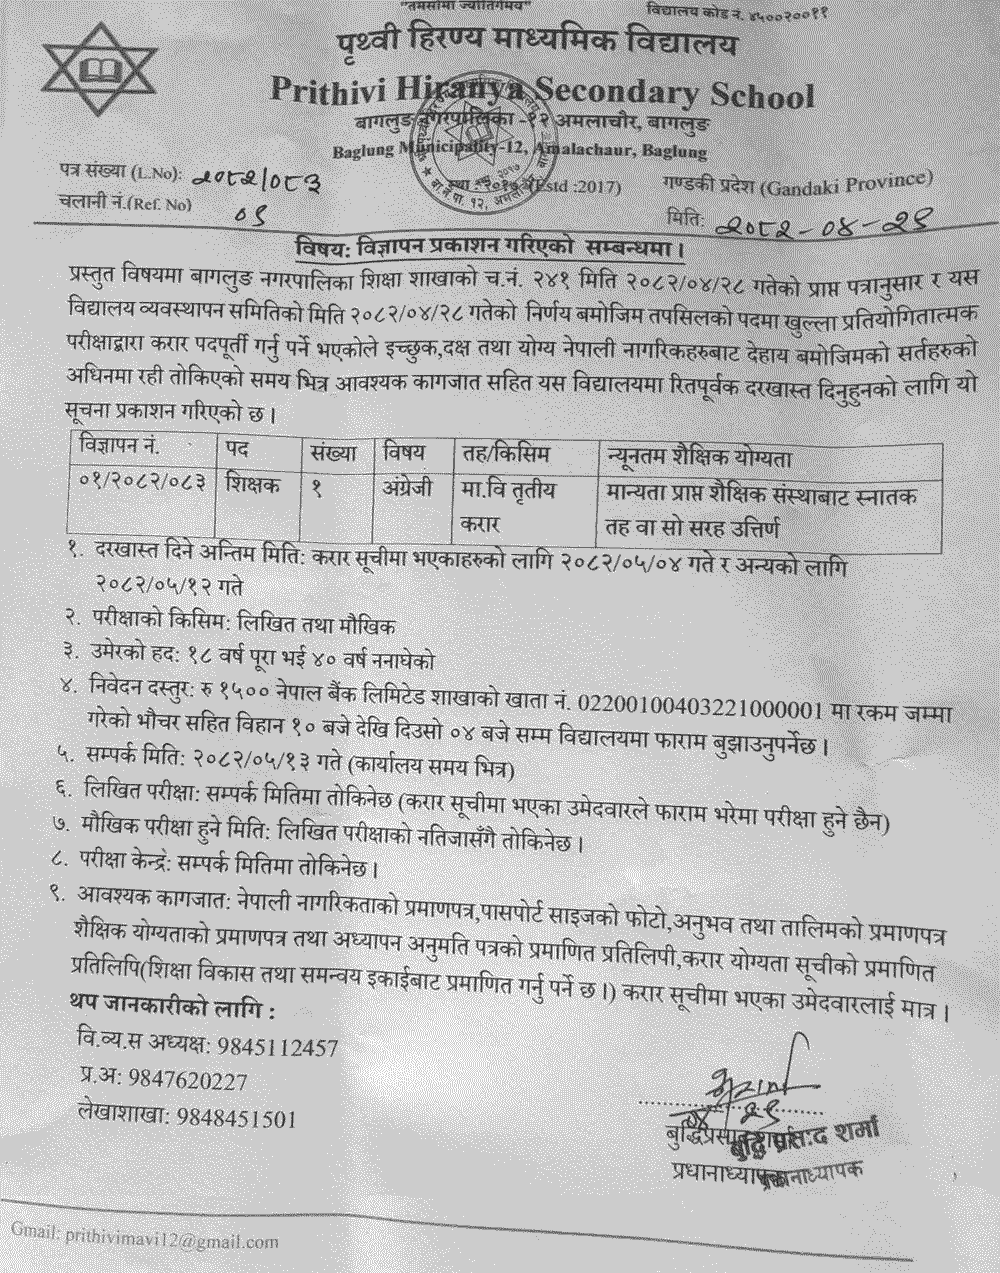 "तमसोमा ज्योतिर्गमय"
विद्यालय कोड नं. ४५००२००११
पृथ्वी हिरण्य माध्यमिक विद्यालय
Prithivi Hiranya Secondary School
बागलुङ नगरपालिका -१२ अमलाचौर, बागलुङ
Baglung Municipality-12, Amalachaur, Baglung
पत्र संख्या (L.No): २०८२/०८३
स्था : २०१७ (Estd :2017)
गण्डकी प्रदेश (Gandaki Province)
चलानी नं.(Ref. No) ०९
मिति: २०८२-०४-२९
विषय: विज्ञापन प्रकाशन गरिएको सम्बन्धमा।
प्रस्तुत विषयमा बागलुङ नगरपालिका शिक्षा शाखाको च.नं. २४१ मिति २०८२/०४/२८ गतेको प्राप्त पत्रानुसार र यस
विद्यालय व्यवस्थापन समितिको मिति २०८२/०४/२८ गतेको निर्णय बमोजिम तपसिलको पदमा खुल्ला प्रतियोगितात्मक
परीक्षाद्वारा करार पदपूर्ती गर्नु पर्ने भएकोले इच्छुक,दक्ष तथा योग्य नेपाली नागरिकहरुबाट देहाय बमोजिमको सर्तहरुको
अधिनमा रही तोकिएको समय भित्र आवश्यक कागजात सहित यस विद्यालयमा रितपूर्वक दरखास्त दिनुहुनको लागि यो
सूचना प्रकाशन गरिएको छ।
विज्ञापन नं. पद संख्या विषय तह/किसिम न्यूनतम शैक्षिक योग्यता
०१/२०८२/०८३ शिक्षक १ अंग्रेजी मा.वि तृतीय मान्यता प्राप्त शैक्षिक संस्थाबाट स्नातक
करार तह वा सो सरह उत्तिर्ण
१. दरखास्त दिने अन्तिम मिति: करार सूचीमा भएकाहरुको लागि २०८२/०५/०४ गते र अन्यको लागि
२०८२/०५/१२ गते
२. परीक्षाको किसिम: लिखित तथा मौखिक
३. उमेरको हद: १८ वर्ष पूरा भई ४० वर्ष ननाघेको
४. निवेदन दस्तुर: रु १५०० नेपाल बैंक लिमिटेड शाखाको खाता नं. 02200100403221000001 मा रकम जम्मा
गरेको भौचर सहित विहान १० बजे देखि दिउसो ०४ बजे सम्म विद्यालयमा फाराम बुझाउनुपर्नेछ।
५. सम्पर्क मिति: २०८२/०५/१३ गते (कार्यालय समय भित्र)
६. लिखित परीक्षा: सम्पर्क मितिमा तोकिनेछ (करार सूचीमा भएका उमेदवारले फाराम भरेमा परीक्षा हुने छैन)
७. मौखिक परीक्षा हुने मिति: लिखित परीक्षाको नतिजासँगै तोकिनेछ।
८. परीक्षा केन्द्र: सम्पर्क मितिमा तोकिनेछ।
९. आवश्यक कागजात: नेपाली नागरिकताको प्रमाणपत्र,पासपोर्ट साइजको फोटो,अनुभव तथा तालिमको प्रमाणपत्र
शैक्षिक योग्यताको प्रमाणपत्र तथा अध्यापन अनुमति पत्रको प्रमाणित प्रतिलिपी,करार योग्यता सूचीको प्रमाणित
प्रतिलिपि(शिक्षा विकास तथा समन्वय इकाईबाट प्रमाणित गर्नु पर्ने छ।) करार सूचीमा भएका उमेदवारलाई मात्र।
थप जानकारीको लागि :
वि.व्य.स अध्यक्ष: 9845112457
प्र.अ: 9847620227
लेखाशाखा: 9848451501
०४/२९
बुद्धिप्रसाद शर्मा
बुद्धि प्रसाद शर्मा
प्रधानाध्यापक
प्रधानाध्यापक
Gmail: prithivimavi12@gmail.com